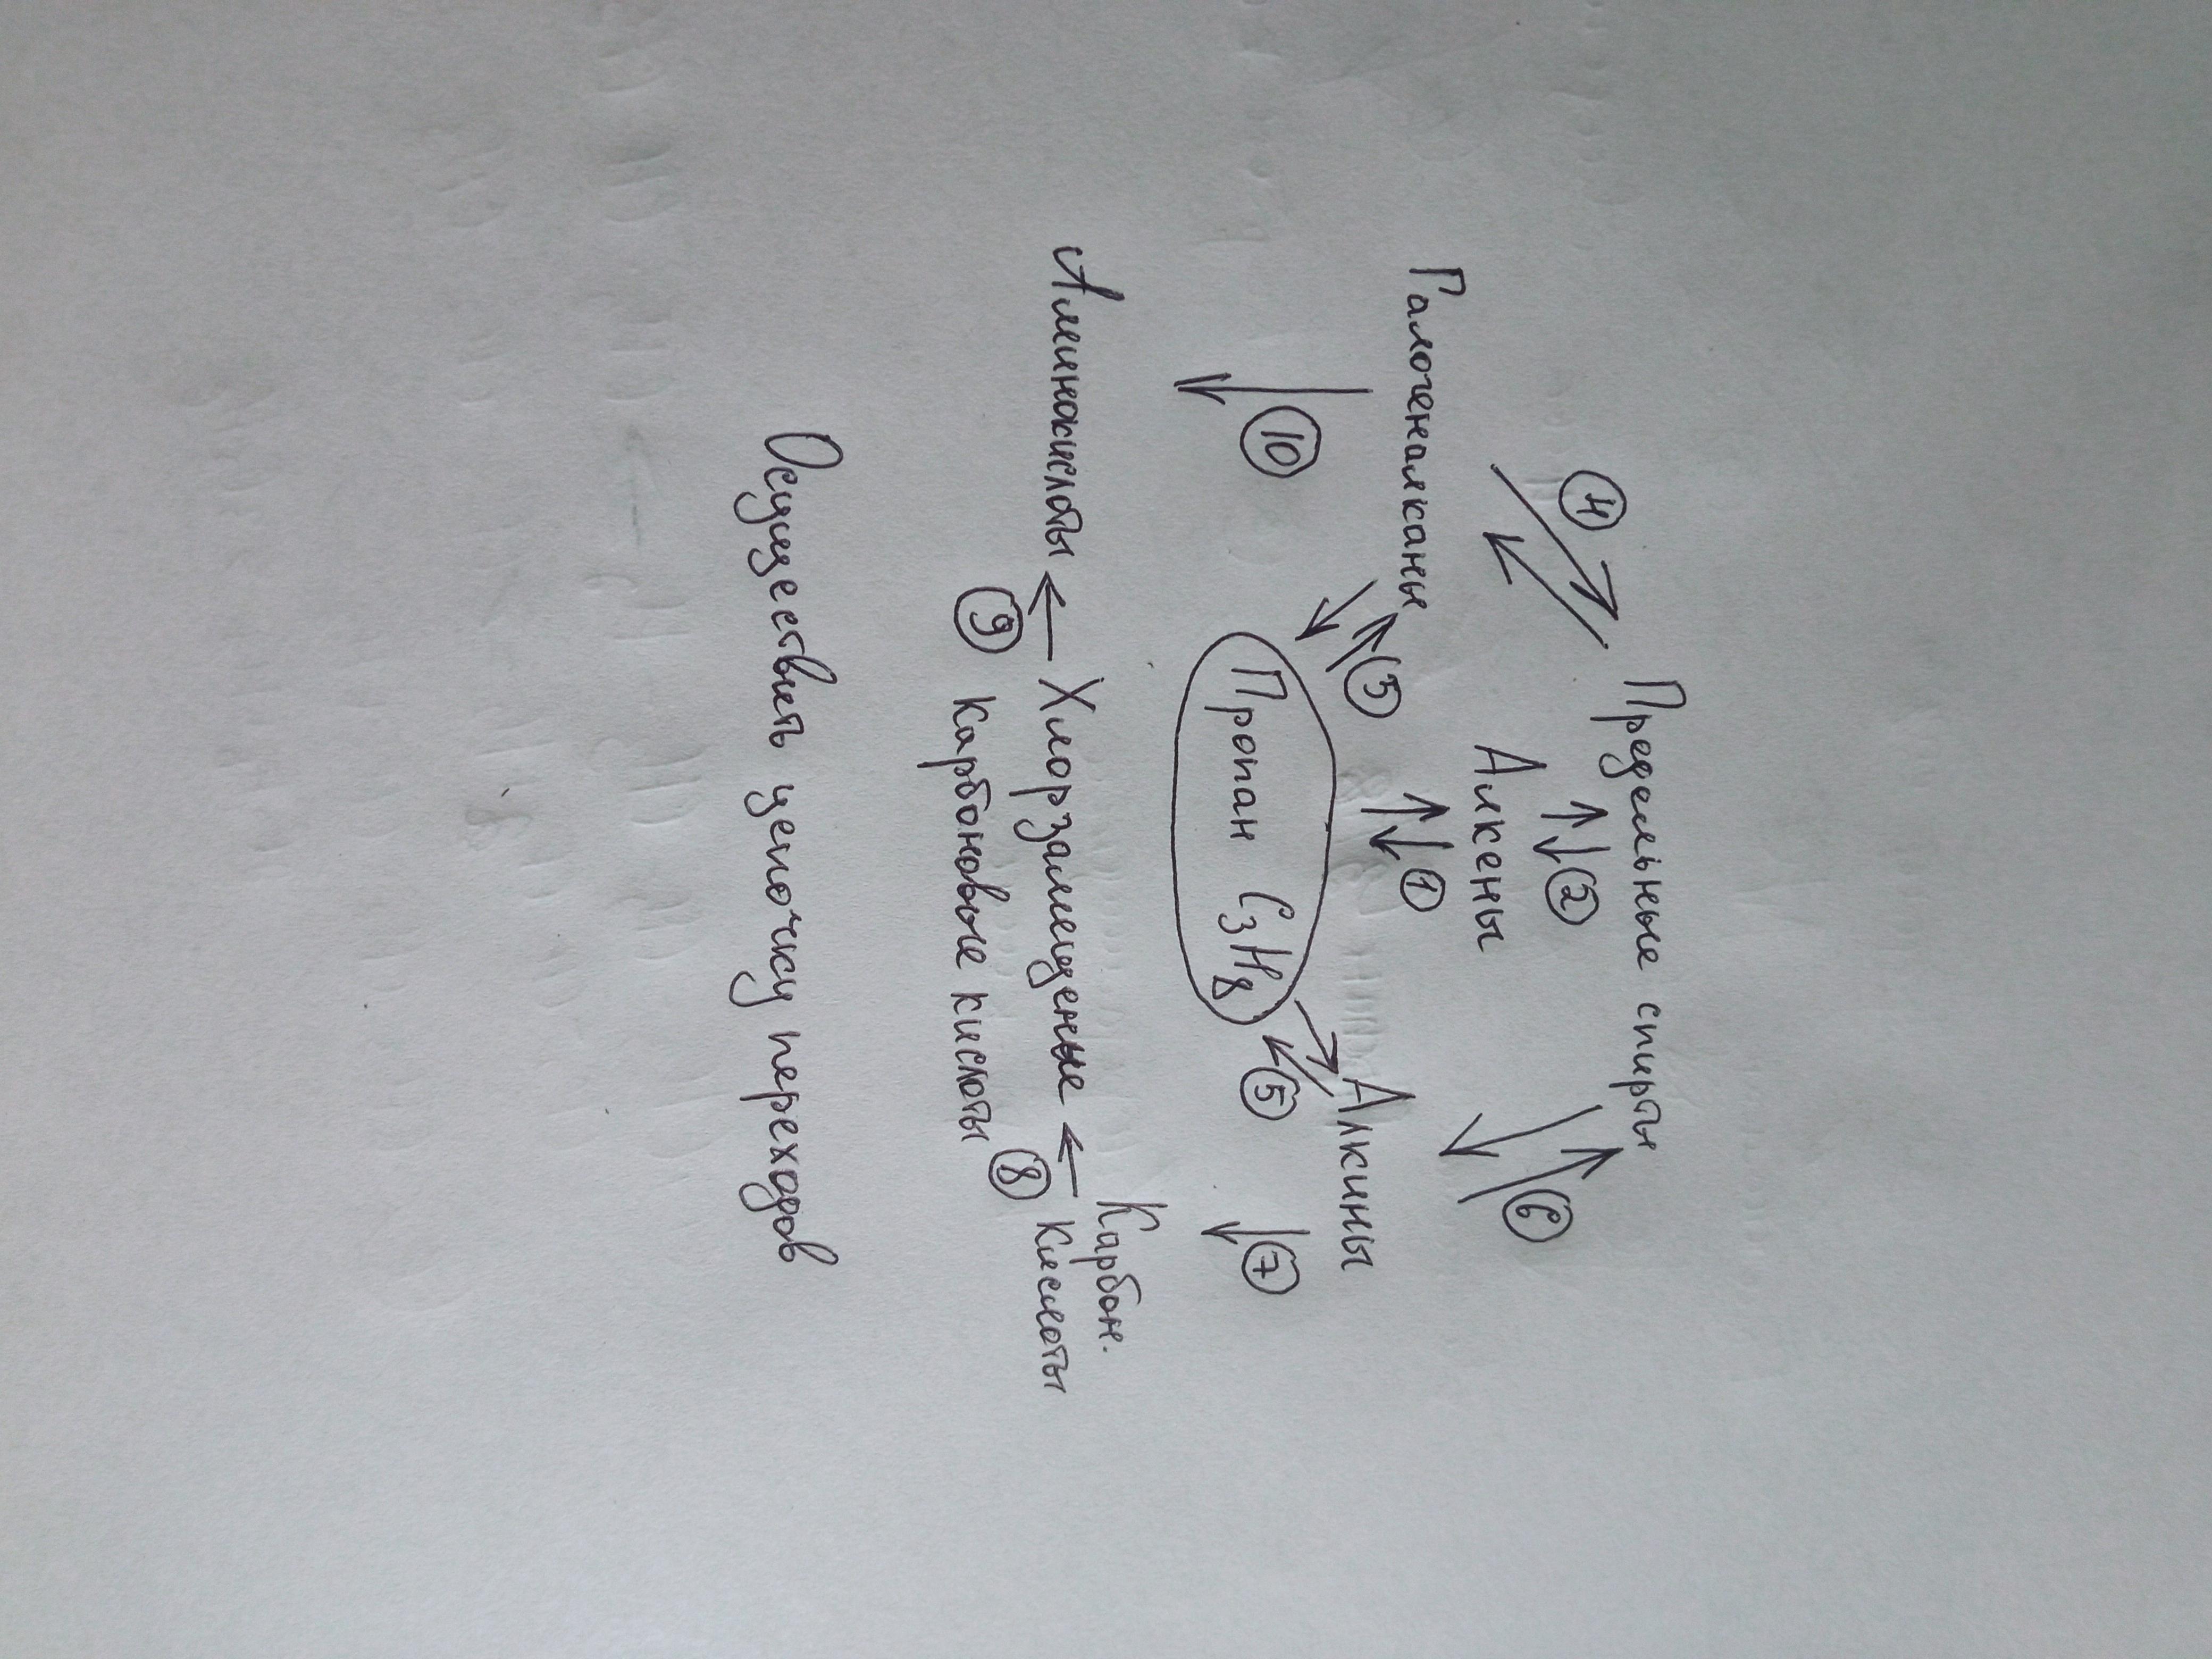 Предельные спирты
④ ② ⑥
Алкены
Галогеналканы ③ ① Алкины
Пропан C₃H₈ ⑤
⑩ ⑦
Карбон.
Аминокислоты ← Хлорзамещенные ← кислоты
⑨ карбоновые кислоты ⑧
Осуществить цепочку переходов